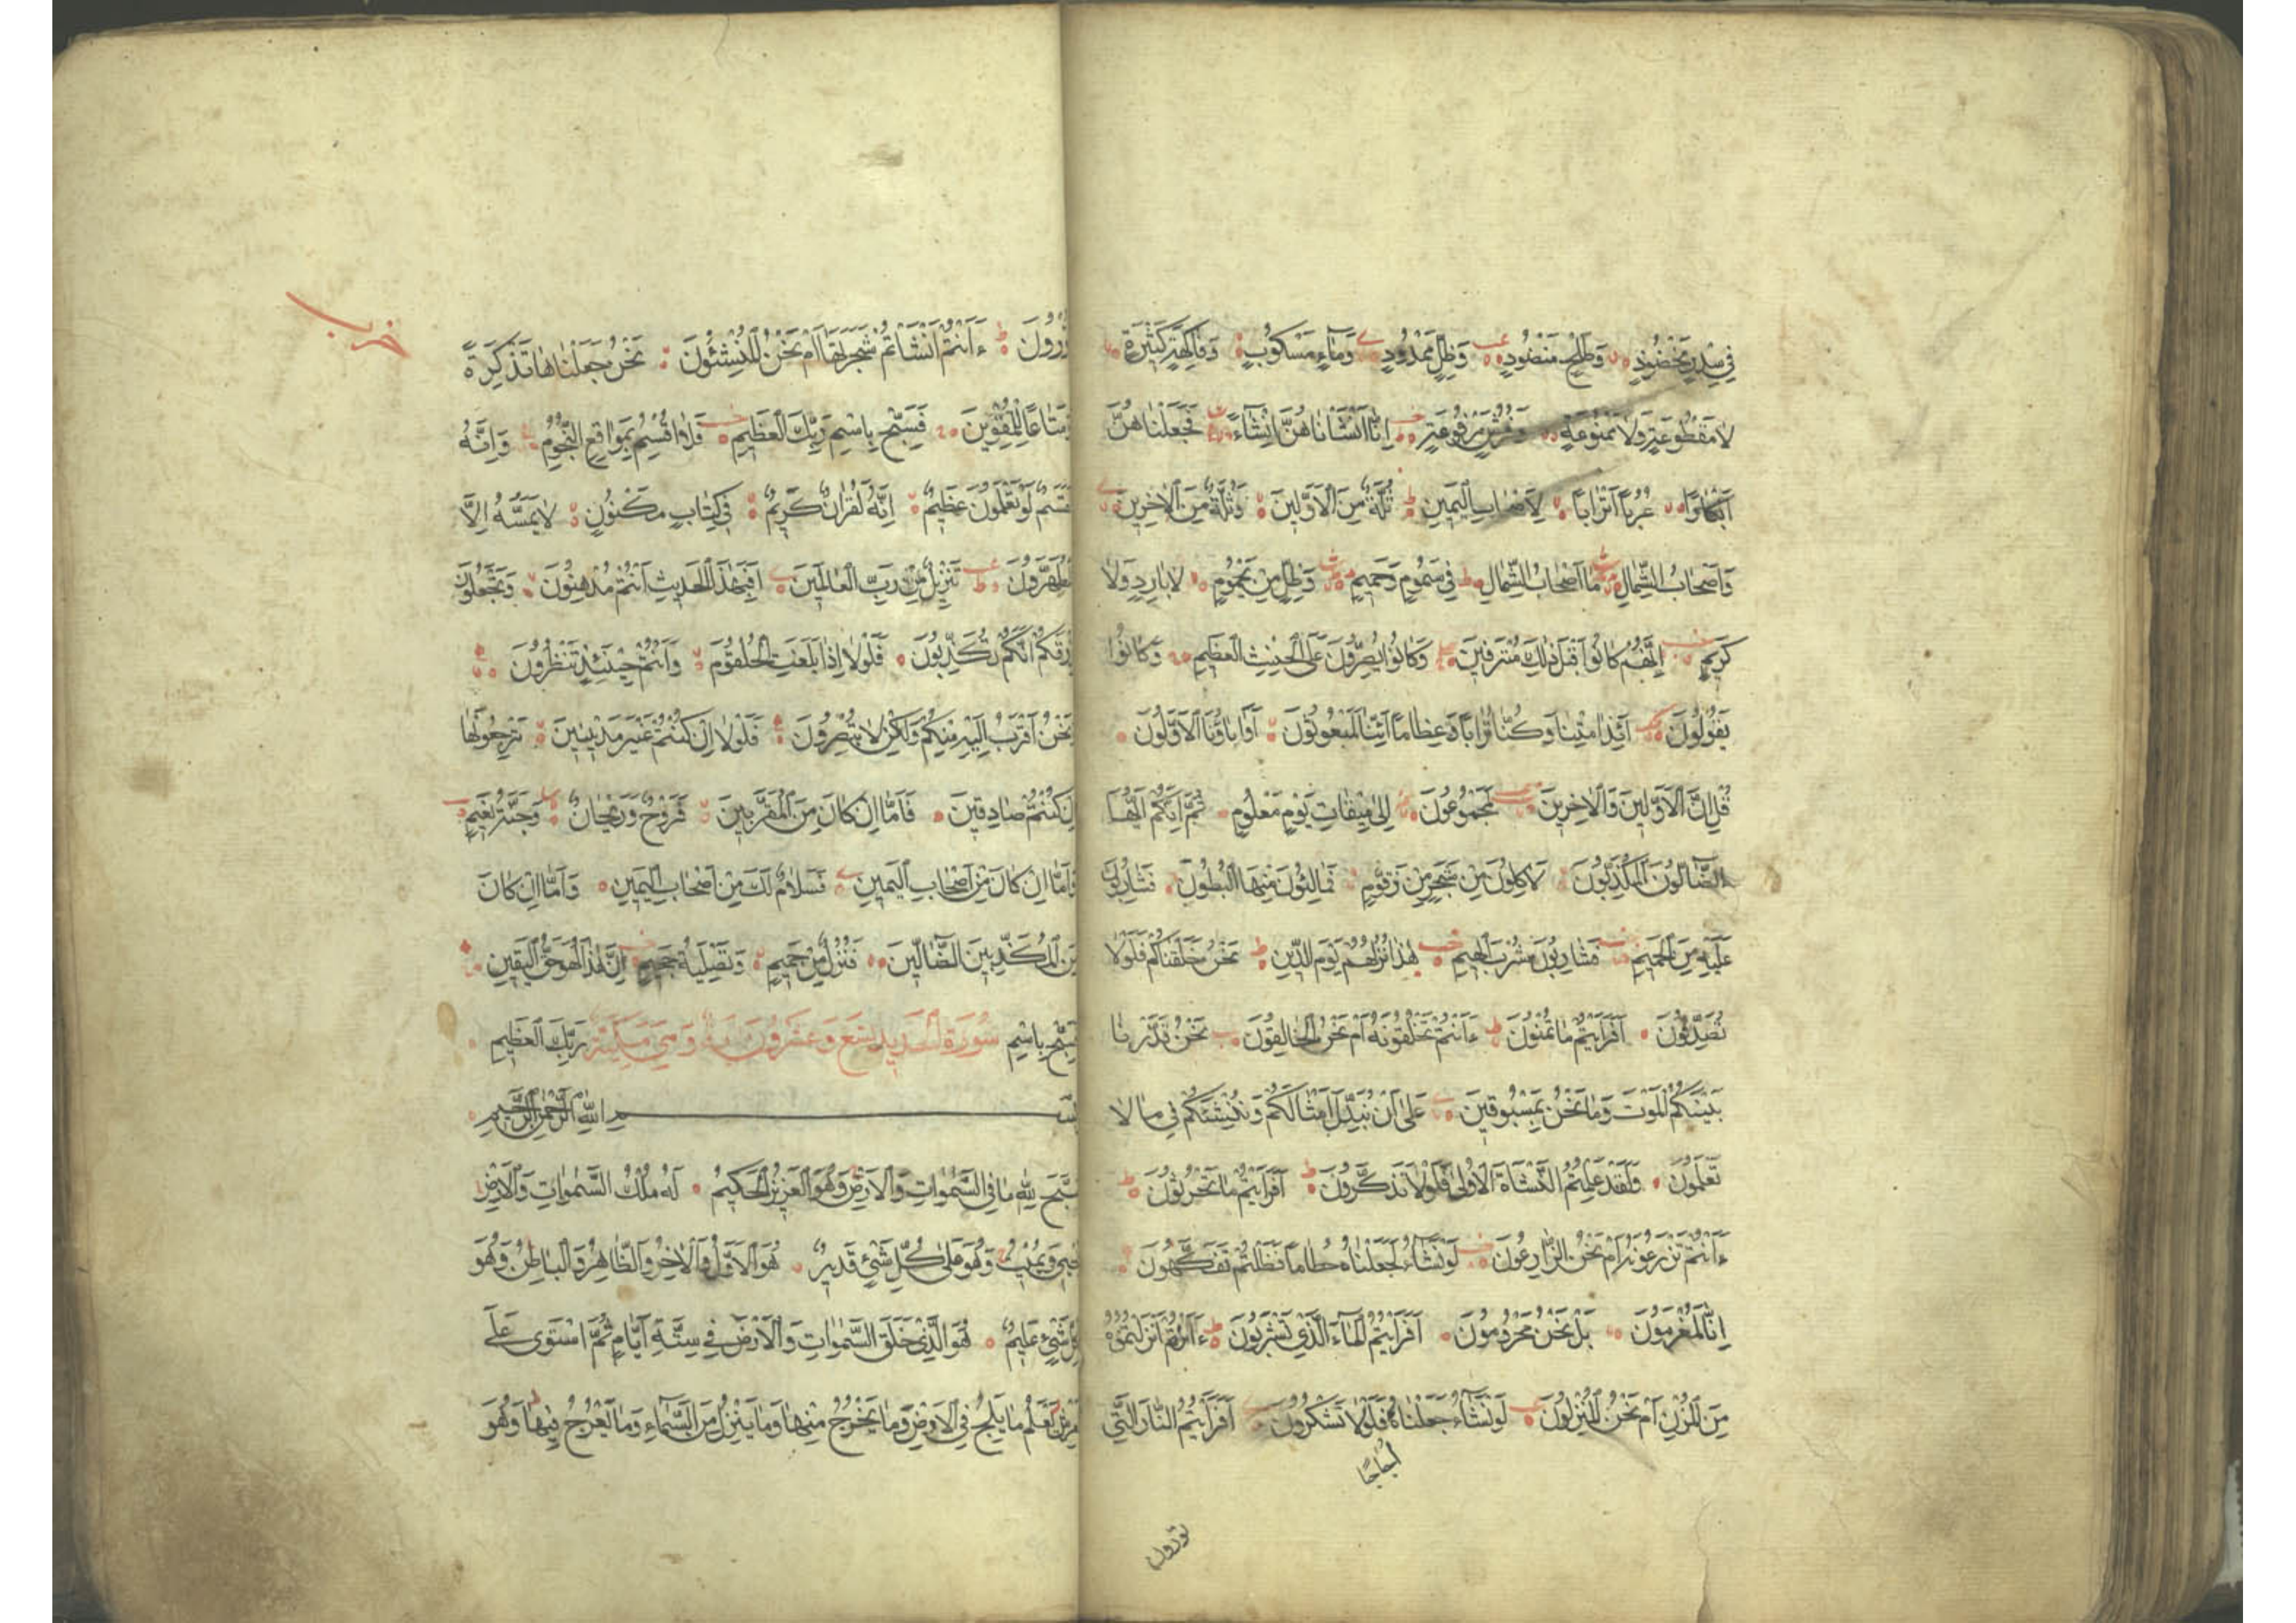 فِي سِدْرٍ مَخْضُودٍ وَطَلْحٍ مَنْضُودٍ وَظِلٍّ مَمْدُودٍ وَمَاءٍ مَسْكُوبٍ وَفَاكِهَةٍ كَثِيرَةٍ
لَا مَقْطُوعَةٍ وَلَا مَمْنُوعَةٍ وَفُرُشٍ مَرْفُوعَةٍ اِنَّا اَنْشَأْنَاهُنَّ اِنْشَاءً فَجَعَلْنَاهُنَّ
اَبْكَارًا عُرُبًا اَتْرَابًا لِاَصْحَابِ الْيَمِينِ ثُلَّةٌ مِنَ الْاَوَّلِينَ وَثُلَّةٌ مِنَ الْاٰخِرِينَ
وَاَصْحَابُ الشِّمَالِ مَا اَصْحَابُ الشِّمَالِ فِي سَمُومٍ وَحَمِيمٍ وَظِلٍّ مِنْ يَحْمُومٍ لَا بَارِدٍ وَلَا
كَرِيمٍ اِنَّهُمْ كَانُوا قَبْلَ ذٰلِكَ مُتْرَفِينَ وَكَانُوا يُصِرُّونَ عَلَى الْحِنْثِ الْعَظِيمِ وَكَانُوا
يَقُولُونَ اَئِذَا مِتْنَا وَكُنَّا تُرَابًا وَعِظَامًا اَئِنَّا لَمَبْعُوثُونَ اَوَاٰبَاؤُنَا الْاَوَّلُونَ
قُلْ اِنَّ الْاَوَّلِينَ وَالْاٰخِرِينَ لَمَجْمُوعُونَ اِلٰى مِيقَاتِ يَوْمٍ مَعْلُومٍ ثُمَّ اِنَّكُمْ اَيُّهَا
الضَّالُّونَ الْمُكَذِّبُونَ لَاٰكِلُونَ مِنْ شَجَرٍ مِنْ زَقُّومٍ فَمَالِئُونَ مِنْهَا الْبُطُونَ فَشَارِبُونَ
عَلَيْهِ مِنَ الْحَمِيمِ فَشَارِبُونَ شُرْبَ الْهِيمِ هٰذَا نُزُلُهُمْ يَوْمَ الدِّينِ نَحْنُ خَلَقْنَاكُمْ فَلَوْلَا
تُصَدِّقُونَ اَفَرَاَيْتُمْ مَا تُمْنُونَ ءَاَنْتُمْ تَخْلُقُونَهُ اَمْ نَحْنُ الْخَالِقُونَ نَحْنُ قَدَّرْنَا
بَيْنَكُمُ الْمَوْتَ وَمَا نَحْنُ بِمَسْبُوقِينَ عَلٰى اَنْ نُبَدِّلَ اَمْثَالَكُمْ وَنُنْشِئَكُمْ فِي مَا لَا
تَعْلَمُونَ وَلَقَدْ عَلِمْتُمُ النَّشْاَةَ الْاُولٰى فَلَوْلَا تَذَكَّرُونَ اَفَرَاَيْتُمْ مَا تَحْرُثُونَ
ءَاَنْتُمْ تَزْرَعُونَهُ اَمْ نَحْنُ الزَّارِعُونَ لَوْ نَشَاءُ لَجَعَلْنَاهُ حُطَامًا فَظَلْتُمْ تَفَكَّهُونَ
اِنَّا لَمُغْرَمُونَ بَلْ نَحْنُ مَحْرُومُونَ اَفَرَاَيْتُمُ الْمَاءَ الَّذِي تَشْرَبُونَ ءَاَنْتُمْ اَنْزَلْتُمُوهُ
مِنَ الْمُزْنِ اَمْ نَحْنُ الْمُنْزِلُونَ لَوْ نَشَاءُ جَعَلْنَاهُ فَلَوْلَا تَشْكُرُونَ اَفَرَاَيْتُمُ النَّارَ الَّتِي
اُجَاجًا
تورون
خرب
تُورُونَ ءَاَنْتُمْ اَنْشَأْتُمْ شَجَرَتَهَا اَمْ نَحْنُ الْمُنْشِئُونَ نَحْنُ جَعَلْنَاهَا تَذْكِرَةً
وَمَتَاعًا لِلْمُقْوِينَ فَسَبِّحْ بِاسْمِ رَبِّكَ الْعَظِيمِ فَلَا اُقْسِمُ بِمَوَاقِعِ النُّجُومِ وَاِنَّهُ
لَقَسَمٌ لَوْ تَعْلَمُونَ عَظِيمٌ اِنَّهُ لَقُرْاٰنٌ كَرِيمٌ فِي كِتَابٍ مَكْنُونٍ لَا يَمَسُّهُ اِلَّا
الْمُطَهَّرُونَ تَنْزِيلٌ مِنْ رَبِّ الْعَالَمِينَ اَفَبِهٰذَا الْحَدِيثِ اَنْتُمْ مُدْهِنُونَ وَتَجْعَلُونَ
رِزْقَكُمْ اَنَّكُمْ تُكَذِّبُونَ فَلَوْلَا اِذَا بَلَغَتِ الْحُلْقُومَ وَاَنْتُمْ حِينَئِذٍ تَنْظُرُونَ
وَنَحْنُ اَقْرَبُ اِلَيْهِ مِنْكُمْ وَلٰكِنْ لَا تُبْصِرُونَ فَلَوْلَا اِنْ كُنْتُمْ غَيْرَ مَدِينِينَ تَرْجِعُونَهَا
اِنْ كُنْتُمْ صَادِقِينَ فَاَمَّا اِنْ كَانَ مِنَ الْمُقَرَّبِينَ فَرَوْحٌ وَرَيْحَانٌ وَجَنَّةُ نَعِيمٍ
وَاَمَّا اِنْ كَانَ مِنْ اَصْحَابِ الْيَمِينِ فَسَلَامٌ لَكَ مِنْ اَصْحَابِ الْيَمِينِ وَاَمَّا اِنْ كَانَ
مِنَ الْمُكَذِّبِينَ الضَّالِّينَ فَنُزُلٌ مِنْ حَمِيمٍ وَتَصْلِيَةُ جَحِيمٍ اِنَّ هٰذَا لَهُوَ حَقُّ الْيَقِينِ
فَسَبِّحْ بِاسْمِ سُورَةُ الْحَدِيدِ تِسْعَ وَعِشْرُونَ يَةً وَهِيَ مَكِّيَّةٌ رَبِّكَ الْعَظِيمِ
بِسْمِ اللّٰهِ الرَّحْمٰنِ الرَّحِيمِ
سَبَّحَ لِلّٰهِ مَا فِي السَّمٰوَاتِ وَالْاَرْضِ وَهُوَ الْعَزِيزُ الْحَكِيمُ لَهُ مُلْكُ السَّمٰوَاتِ وَالْاَرْضِ
يُحْيِي وَيُمِيتُ وَهُوَ عَلٰى كُلِّ شَيْءٍ قَدِيرٌ هُوَ الْاَوَّلُ وَالْاٰخِرُ وَالظَّاهِرُ وَالْبَاطِنُ وَهُوَ
بِكُلِّ شَيْءٍ عَلِيمٌ هُوَ الَّذِي خَلَقَ السَّمٰوَاتِ وَالْاَرْضَ فِي سِتَّةِ اَيَّامٍ ثُمَّ اسْتَوٰى عَلَى
الْعَرْشِ يَعْلَمُ مَا يَلِجُ فِي الْاَرْضِ وَمَا يَخْرُجُ مِنْهَا وَمَا يَنْزِلُ مِنَ السَّمَاءِ وَمَا يَعْرُجُ فِيهَا وَهُوَ